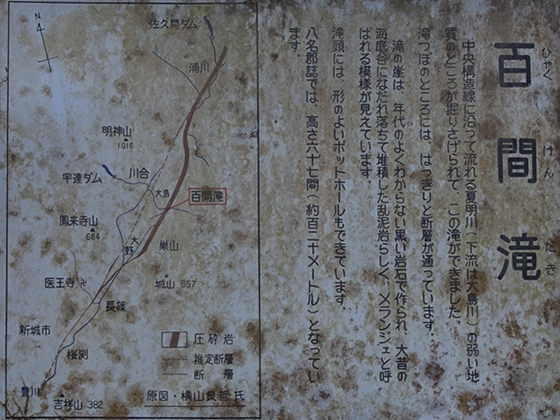 百間滝
ひゃっ けん だき
中央構造線に沿って流れる夏明川(下流は大島川)の弱い地
質のところが掘りさげられて、この滝ができました。
滝つぼのところには、はっきりと断層が通っています。
滝の崖は、年代のよくわからない黒い岩石で作られ、大昔の
海底谷になだれ落ちて堆積した乱泥岩らしく、メランジェと呼
ばれる模様が見えています。
滝頭には、形のよいポットホールもできています。
八名郡誌では、高さ六十七間(約百二十メートル)となってい
ます。
佐久間ダム
浦川
明神山
1016
川合
宇連ダム
大島
百間滝
鳳来寺山
684
大野
巣山
医王寺
城山 657
長篠
新城市
桜渕
豊川
吉祥山 382
圧砕岩
推定断層
断層
原図・横山良哲氏